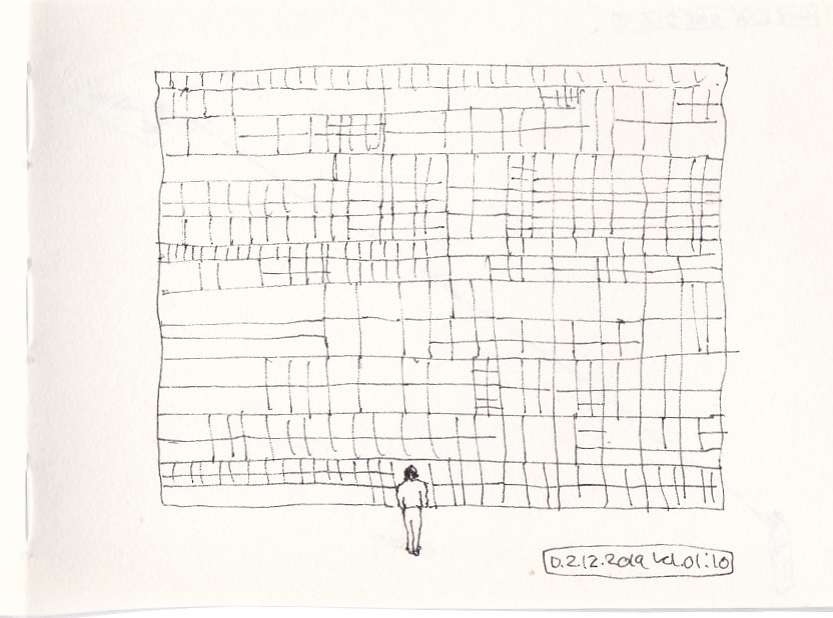 D.2.12.2019 kl.01:10